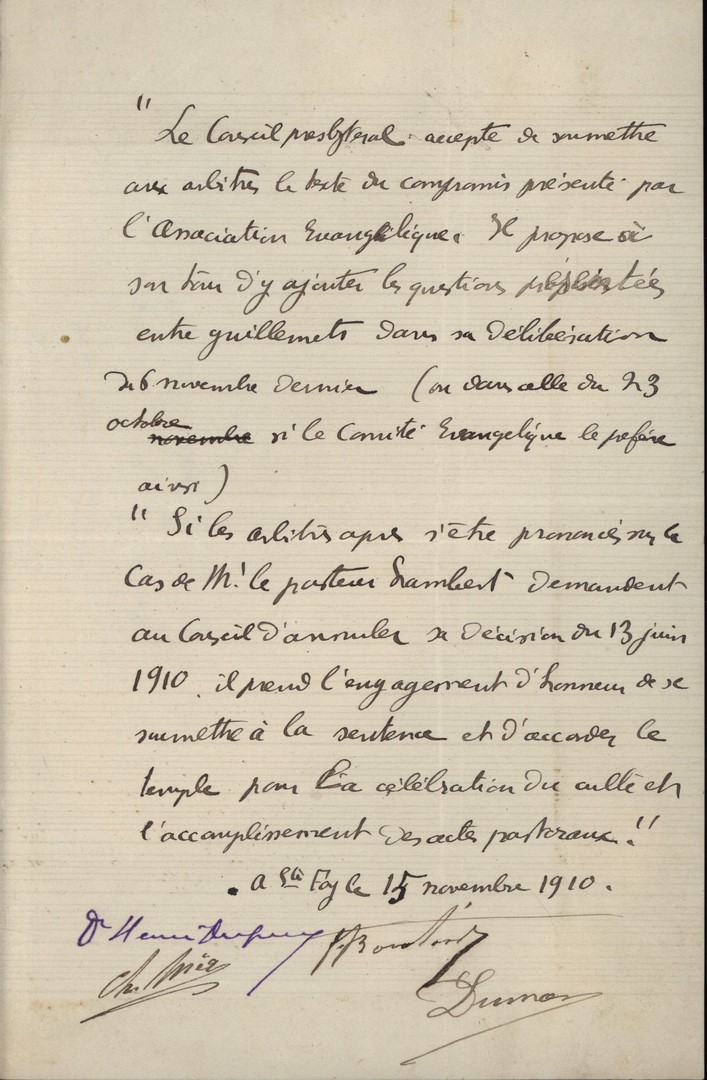 "
Le Conseil presbytéral accepte de soumettre
aux arbitres le texte du compromis présenté par
l'Association Evangélique. Il propose à
son tour d'y ajouter les questions
entre guillemets dans sa délibération
du 6 novembre dernier (ou dans celle du 23
octobre
novembre si le Comité Evangelique le préfère
ainsi)
" Si les arbitres après s'être prononcés sur le
Cas de Mr. le pasteur Lambert demandent
au Conseil d'annuler sa décision du 13 juin
1910, il prend l'engagement d'honneur de se
soumettre à la sentence et d'accorder le
temple pour la célébration du culte et
l'accomplissement des actes pastoraux."
A Ste Foy le 15 novembre 1910.
Dr Henri
Ch.
Dumas